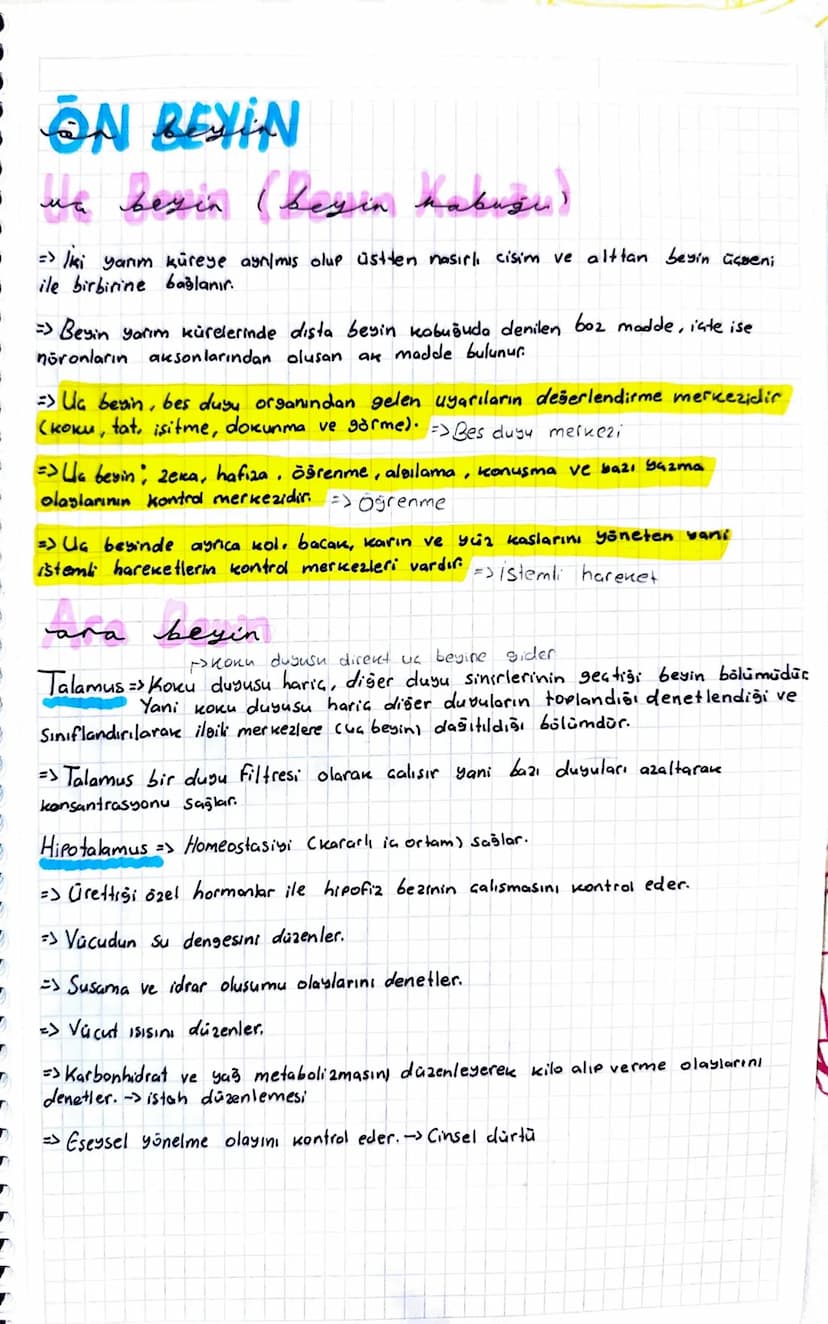 ÖN BEYİN
Uç beyin (Beyin Kabuğu)
=> İki yarım küreye ayrılmış olup üstten nasırlı cisim ve alttan beyin üçgeni
ile birbirine bağlanır.
=> Beyin yarım kürelerinde dışta beyin kabuğuda denilen boz madde, içte ise
nöronların aksonlarından oluşan ak madde bulunur.
=> Uç beyin, beş duyu organından gelen uyarıların değerlendirme merkezidir
(koku, tat, işitme, dokunma ve görme). => Beş duyu merkezi
=> Uç beyin; zeka, hafıza, öğrenme, algılama, konuşma ve bazı yazma
olaylarının kontrol merkezidir. => Öğrenme
=> Uç beyinde ayrıca kol, bacak, karın ve yüz kaslarını yöneten yani
istemli hareketlerin kontrol merkezleri vardır. => istemli hareket
ara beyin
-> Koku duyusu direkt uç beyine gider
Talamus => Koku duyusu hariç, diğer duyu sinirlerinin geçtiği beyin bölümüdür
Yani koku duyusu hariç diğer duyuların toplandığı denetlendiği ve
sınıflandırılarak ilgili merkezlere (uç beyin) dağıtıldığı bölümdür.
=> Talamus bir duyu filtresi olarak çalışır yani bazı duyuları azaltarak
konsantrasyonu sağlar.
Hipotalamus => Homeostasiyi (kararlı iç ortam) sağlar.
=> Ürettiği özel hormonlar ile hipofiz bezinin çalışmasını kontrol eder.
=> Vücudun su dengesini düzenler.
=> Susama ve idrar oluşumu olaylarını denetler.
=> Vücut ısısını düzenler.
=> Karbonhidrat ve yağ metabolizmasını düzenleyerek kilo alıp verme olaylarını
denetler. -> iştah düzenlemesi
=> Eşeysel yönelme olayını kontrol eder. -> Cinsel dürtü